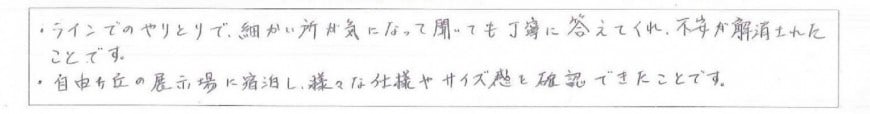 ・ラインでのやりとりで、細かい所が気になって聞いても丁寧に答えてくれ、不安が解消された
ことです。
・自由が丘の展示場に宿泊し、様々な仕様やサイズ感を確認できたことです。